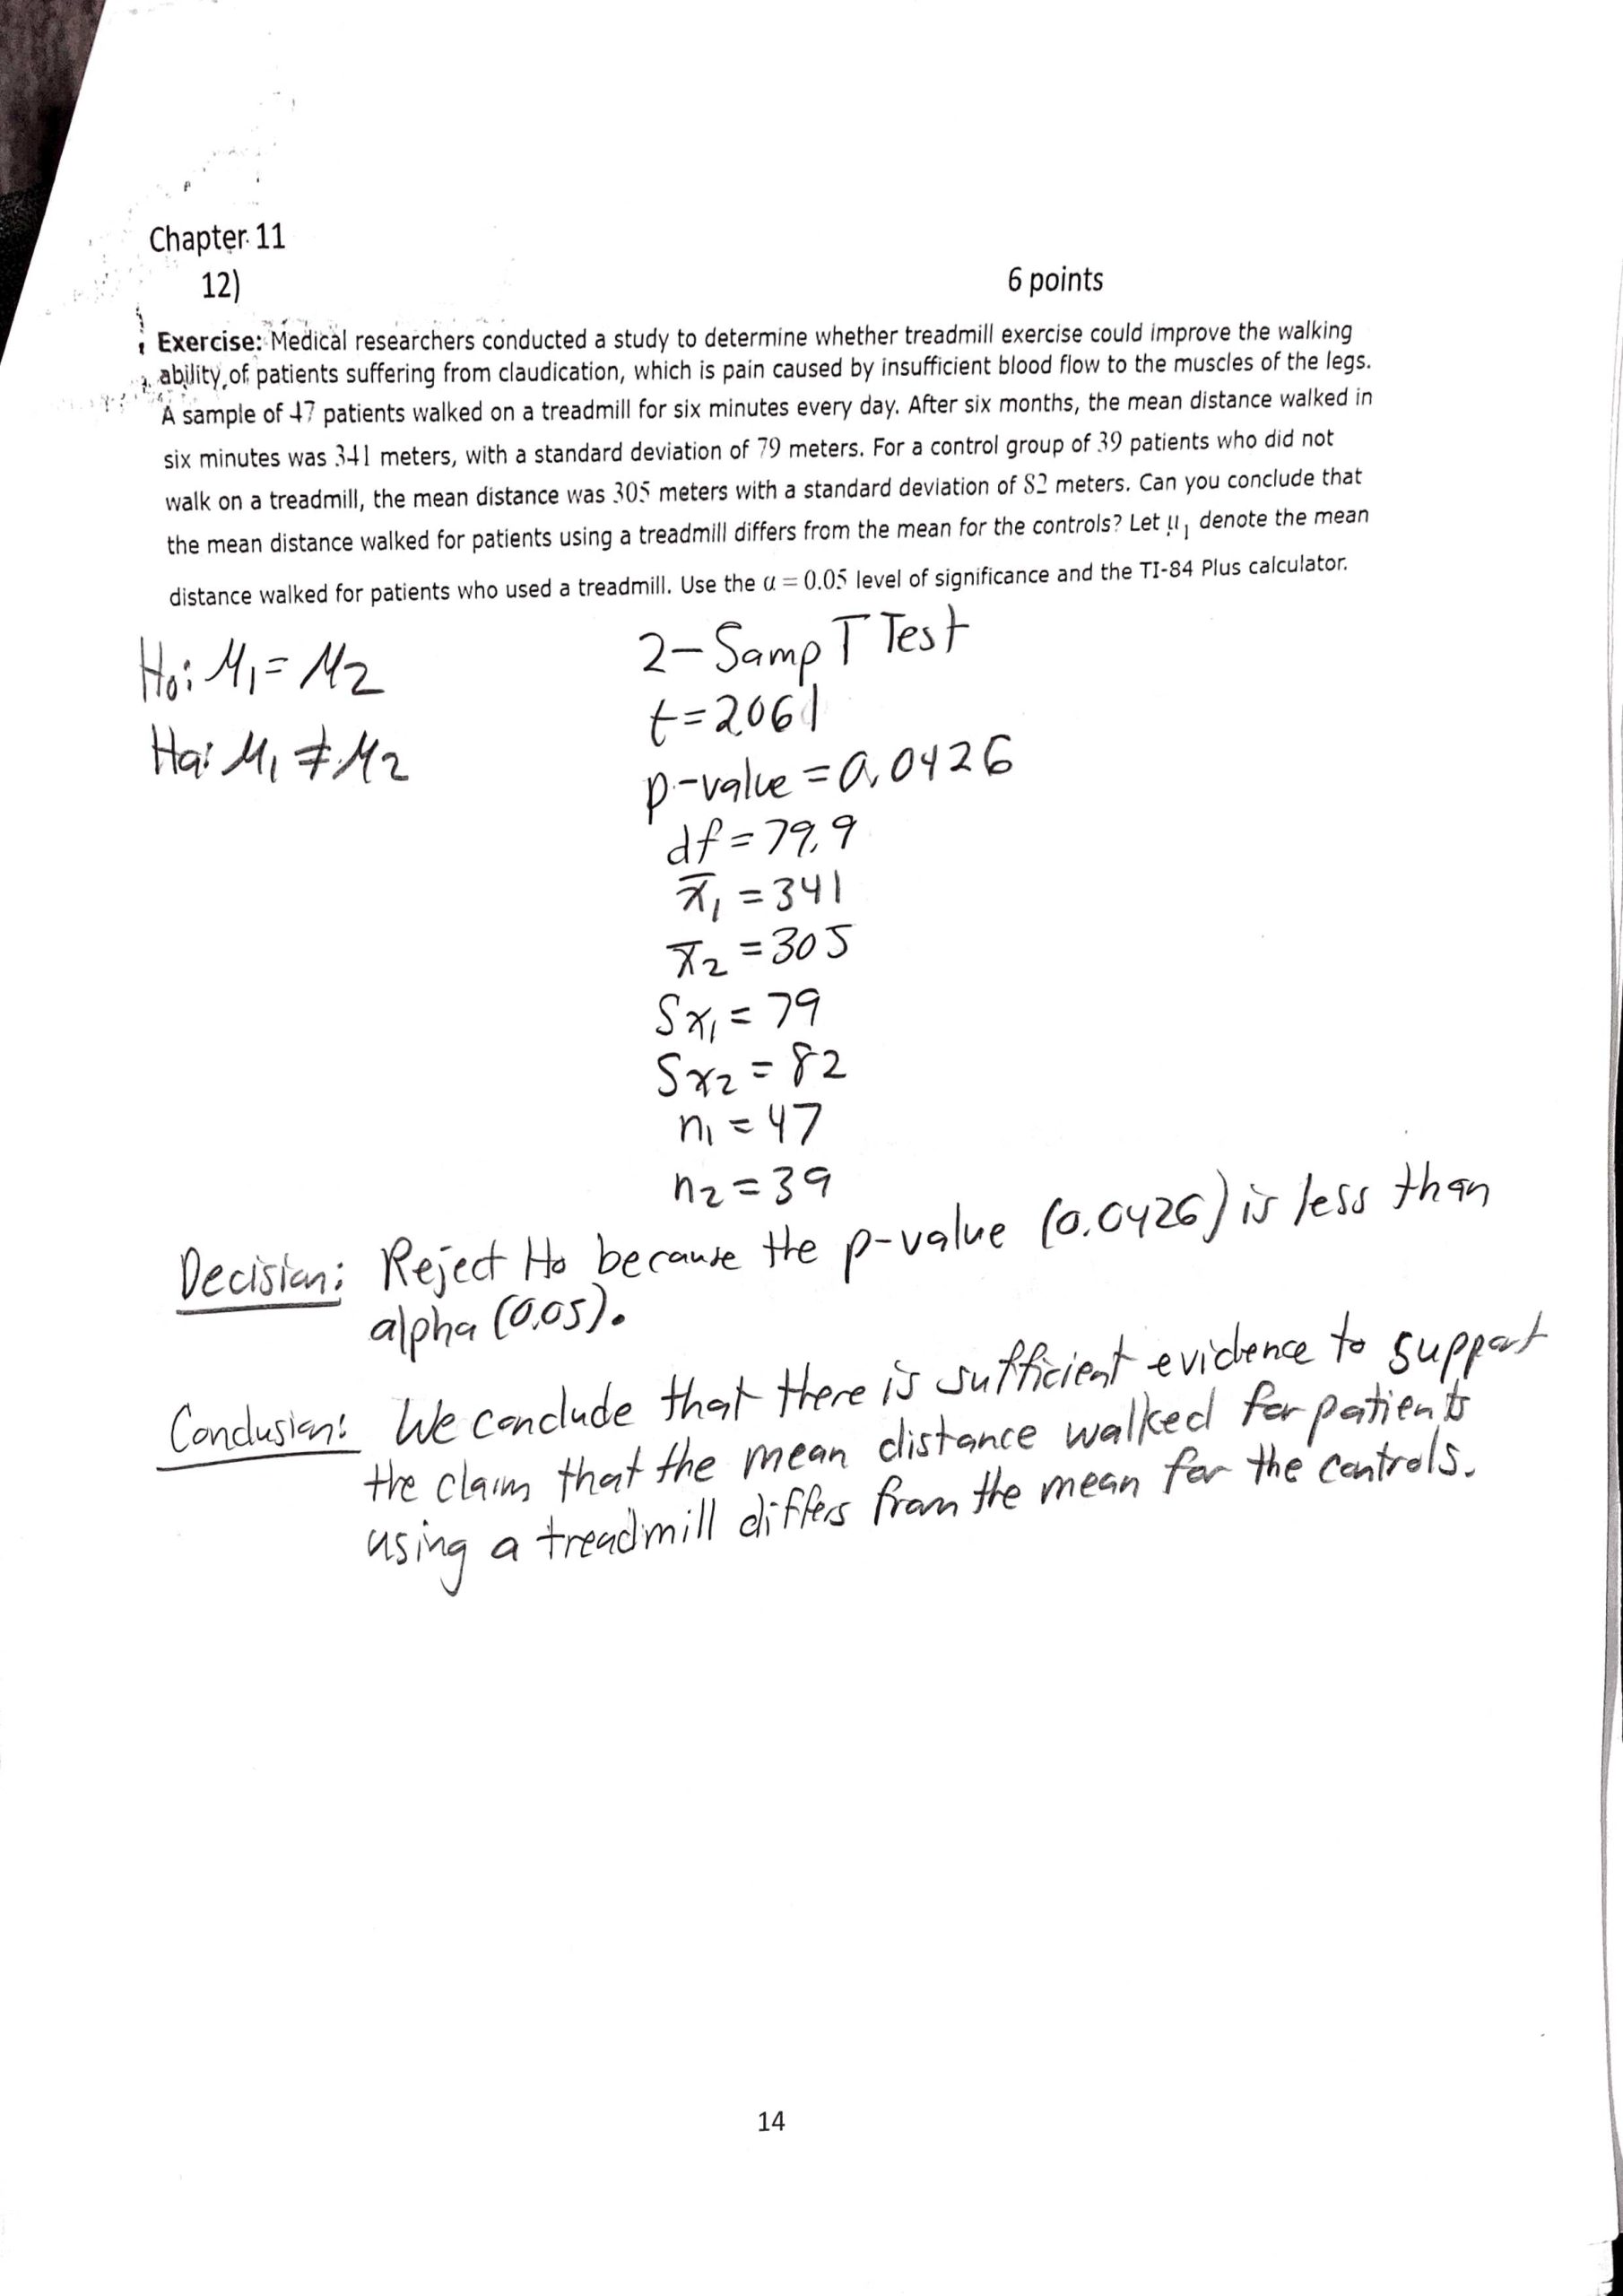 Chapter 11
12)
6 points
Exercise: Medical researchers conducted a study to determine whether treadmill exercise could improve the walking
ability of patients suffering from claudication, which is pain caused by insufficient blood flow to the muscles of the legs.
A sample of 47 patients walked on a treadmill for six minutes every day. After six months, the mean distance walked in
six minutes was 341 meters, with a standard deviation of 79 meters. For a control group of 39 patients who did not
walk on a treadmill, the mean distance was 305 meters with a standard deviation of 82 meters. Can you conclude that
the mean distance walked for patients using a treadmill differs from the mean for the controls? Let μ₁ denote the mean
distance walked for patients who used a treadmill. Use the α = 0.05 level of significance and the TI-84 Plus calculator.
H₀: μ₁ = μ₂
Ha: μ₁ ≠ μ₂
2-Samp T Test
t = 2.061
p-value = 0.0426
df = 79.9
x̄₁ = 341
x̄₂ = 305
Sx₁ = 79
Sx₂ = 82
n₁ = 47
n₂ = 39
Decision: Reject H₀ because the p-value (0.0426) is less than
alpha (0.05).
Conclusion: We conclude that there is sufficient evidence to support
the claim that the mean distance walked for patients
using a treadmill differs from the mean for the controls.
14